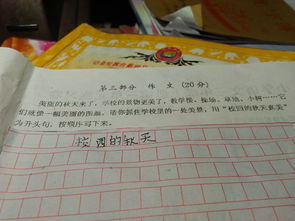 第三部分 作文(20分)
美丽的秋天来了，学校的景物更美了，教学楼、操场、草地、小树……它
们就像一幅美丽的图画。请你抓住学校里的一处美景，用“校园的秋天真美”
为开头句，按顺序写下来。
校园的秋天